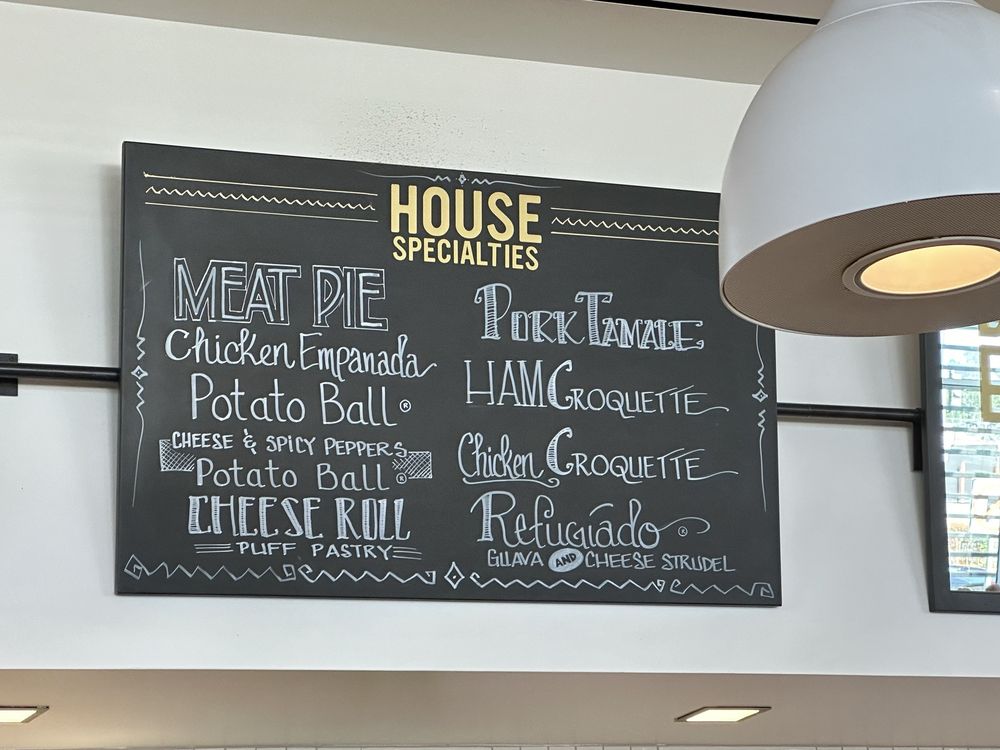 HOUSE
SPECIALTIES
MEAT PIE
Chicken Empanada
Potato Ball ®
CHEESE & SPICY PEPPERS
Potato Ball ®
CHEESE ROLL
PUFF PASTRY
PORK TAMALE
HAM CROQUETTE
Chicken CROQUETTE
Refugiado ®
GUAVA AND CHEESE STRUDEL